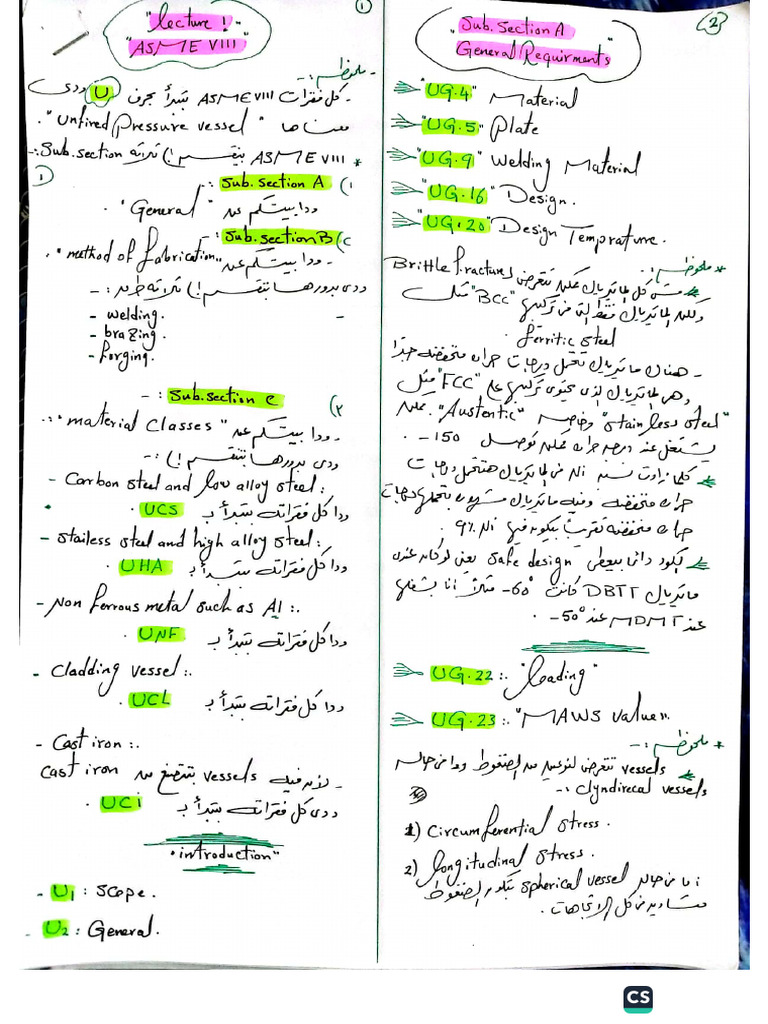 ①
"lecture 1"
"ASME VIII"
- ملحوظه :-
- كل فقرات ASME VIII بتبدأ بحرف U ودي
معناها "Unfired pressure vessel".
* ASME VIII بيتقسم الي ثلاثه Sub.section :-
①
١) Sub.section A :-
- ودا بيتكلم عن "General".
٢) Sub.section B :-
- ودا بيتكلم عن "method of fabrication".
ودي بدورها بتنقسم الي ثلاثه طرق :-
- welding.
- brazing.
- forging.
٣) Sub.section C :-
- ودا بيتكلم عن "material classes" :-
ودي بدورها بتنقسم الي :-
- Carbon steel and low alloy steel :
ودا كل فقراته بتبدأ بـ UCS .
- stailess steel and high alloy steel :
ودا كل فقراته بتبدأ بـ UHA .
- Non ferrous metal such as Al :.
ودا كل فقراته بتبدأ بـ UNF .
- Cladding vessel :.
ودا كل فقراته بتبدأ بـ UCL .
- Cast iron :.
لان فيه vessels بتتصنع من Cast iron
ودي كل فقراته بتبدأ بـ UCi .
"introduction"
- U1 : Scope.
- U2 : General.
②
"Sub.section A
General Requirments"
"UG.4" Material
"UG.5" Plate
"UG.9" Welding Material
"UG.16" Design.
"UG.20" Design Temprature.
* ملحوظه :-
مش كل الماتريال ممكن تتعرض لـ Brittle fracture
ولكن الماتريال فقط التي في تركيبها "BCC" مثل
ferritic steel .
- هناك ماتريال تتحمل درجات حراره منخفضه جدا
وهي الماتريال الذي يحتوي تركيبها علي "FCC" مثل
"stainless steel" وخاصه "Austentic". ممكن
يشتغل عند درجه حراره ممكن توصل 150- .
كلما زادت نسبه الـ Ni في الماتريال هتتحمل درجات
حراره منخفضه وفيه ماتريال مشهوره بتحملها درجات
حراره منخفضه تقريباً بيكون فيها الـ Ni 9%
الكود دائما بيعطي safe design يعني لو كان عندي
ماتريال DBTT كانت 60°- مثلاً انا بشغلها
عند MDMT عند 50°- .
UG.22 :. "loading"
UG.23 :. "MAWS value".
* ملحوظه :-
vessels تتعرض لنوعين من الضغوط ودا في حاله
clyndirecal vessels :-
1) Circumferential stress.
2) longitudinal stress.
اما في حاله spherical vessel بتكون الضغوط
متساويه في كل الاتجاهات .
CS